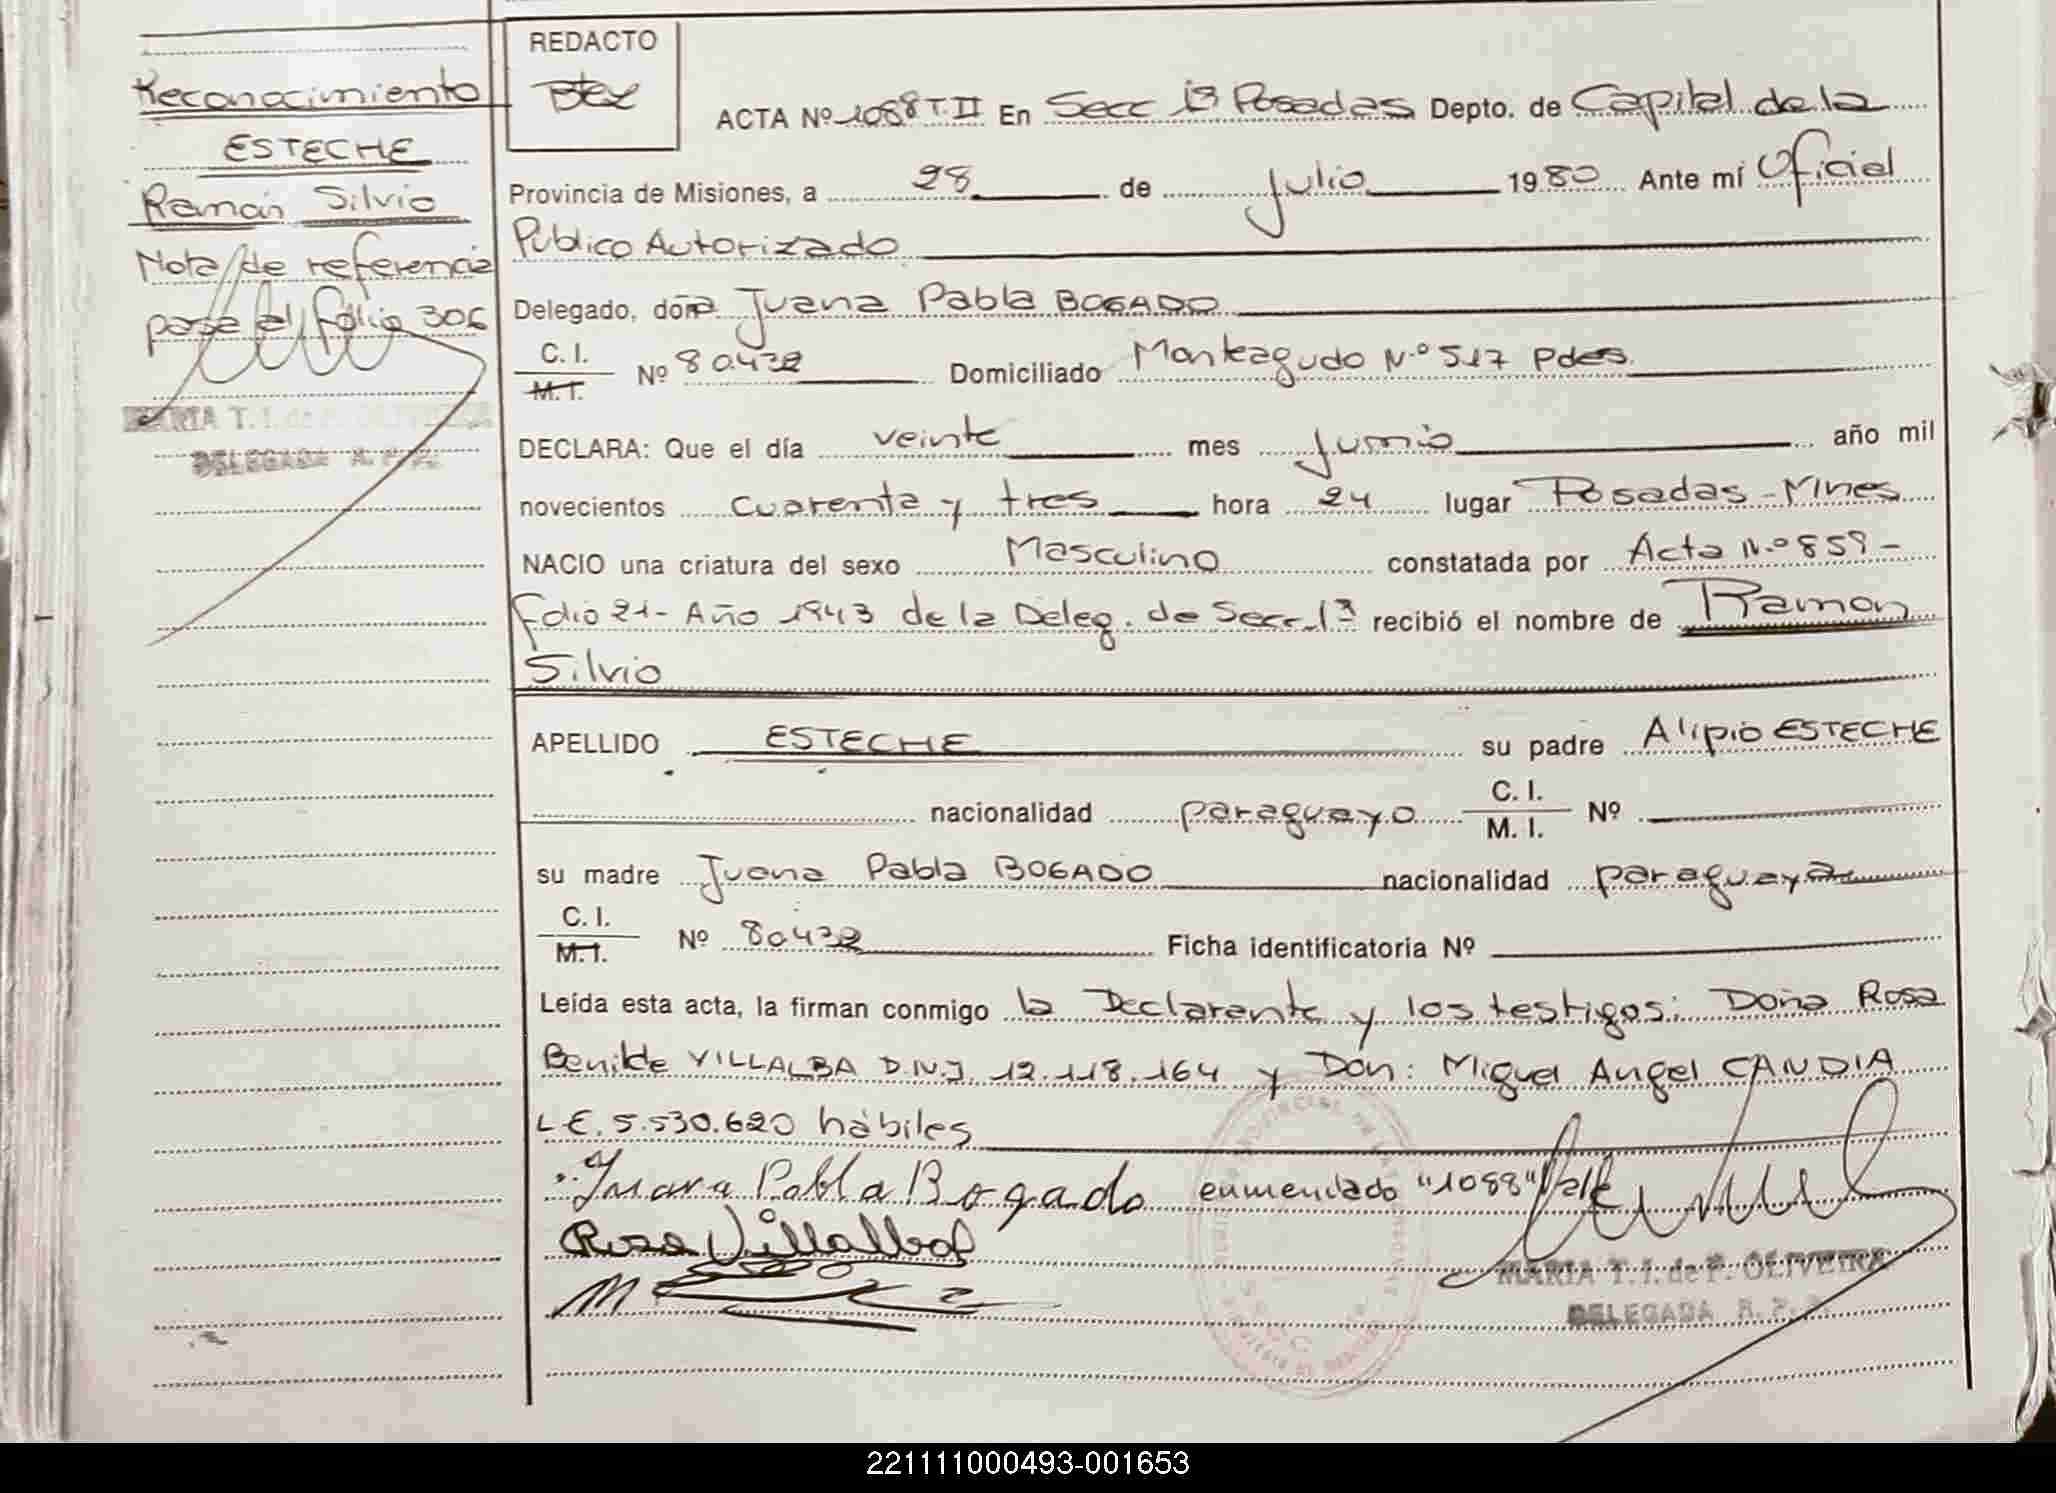 Reconocimiento
ESTECHE
Ramón Silvio
Nota de referencia
pase al folio 306
MARIA T. I. de P. OLIVEIRA
DELEGADA R. P. P.
REDACTO
ACTA Nº 1088 T. II En Secc 1ª Posadas Depto. de Capital de la
Provincia de Misiones, a 28 de Julio 1980 Ante mí Oficial
Publico Autorizado
Delegado, doña Juana Pabla BOGADO
C. I.
M. I. Nº 80.432 Domiciliado Monteagudo N.º 517 Pdas.
DECLARA: Que el día veinte mes Junio año mil
novecientos cuarenta y tres hora 24 lugar Posadas - Mnes
NACIO una criatura del sexo Masculino constatada por Acta N.º 859 -
folio 21 - Año 1943 de la Deleg. de Secc. 1ª recibió el nombre de Ramon
Silvio
APELLIDO ESTECHE su padre Alipio ESTECHE
nacionalidad paraguayo C. I.
M. I. Nº
su madre Juana Pabla BOGADO nacionalidad paraguaya
C. I.
M. I. Nº 80.432 Ficha identificatoria Nº
Leída esta acta, la firman conmigo la Declarante y los testigos: Doña Rosa
Benilde VILLALBA D.N.I. 12.118.164 y Don: Miguel Angel CANDIA
L.E. 5.530.620 hábiles
Juana Pabla Bogado enmendado "1088" Vale
Rosa Villalba
MARIA T. I. de P. OLIVEIRA
DELEGADA R. P. P.
221111000493-001653